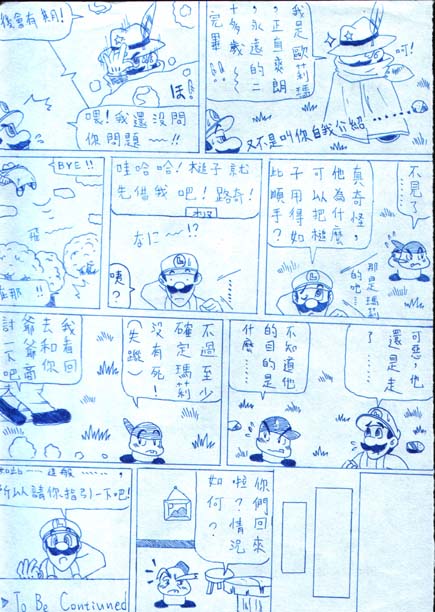 我是歐莉瑪
,正自爽朗
,永遠的二
十多歲!!~
完畢!!
呵!
又不是叫你自我介紹……
後會有期!
ほ!
喂!我還沒問
你問題~~!!
不見了…
那是瑪莉
的吧…
真奇怪,
他為什麼
可以把槌
子用得如
此順手?
………
哇哈哈!槌子就
先借我吧!路奇!
なに~!?
咦?
BYE!!
飛
可惡,他
還是走
了……
不知道他
的目的是
什麼……
不過至少
確定瑪莉
沒有死!
(失蹤)
我和你回
去爺爺
討
一下吧
你們回來
啦?情況
如何?
所以請你指引一下吧!
To Be Contiuned